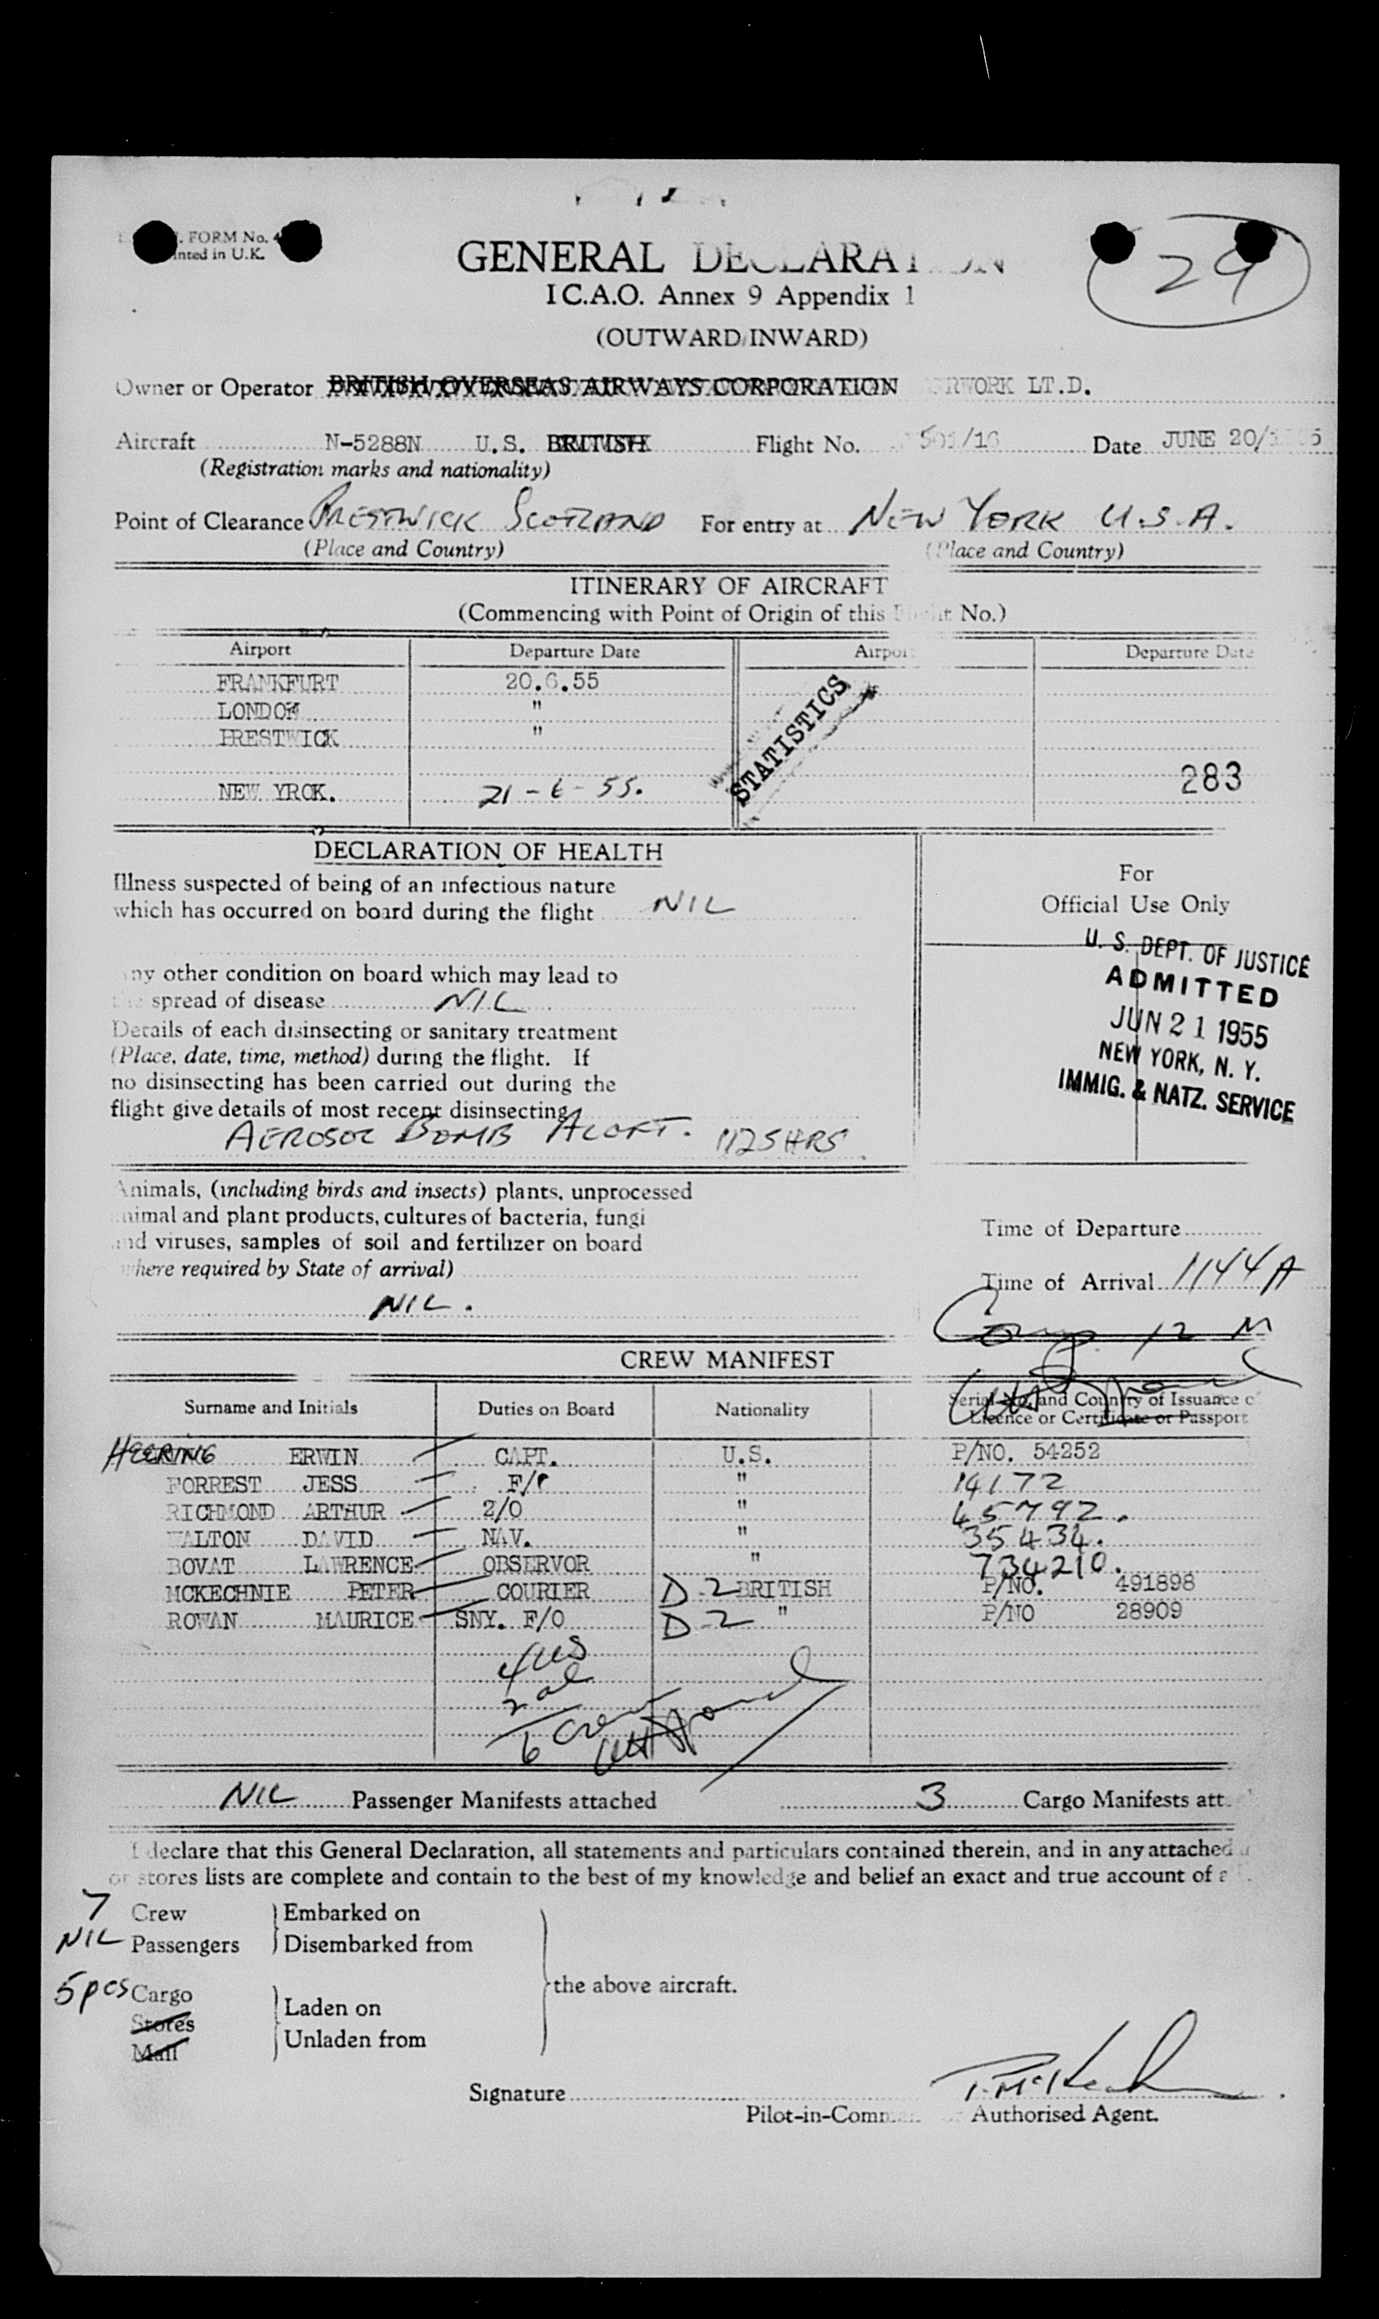 FORM No. 4
nted in U.K.
29
GENERAL DECLARATION
I C.A.O. Annex 9 Appendix 1
(OUTWARD/INWARD)
Owner or Operator BRITISH OVERSEAS AIRWAYS CORPORATION RWORK LT.D.
Aircraft N-5288N U.S. BRITISH Flight No. Date JUNE 20/
(Registration marks and nationality)
Point of Clearance PRESTWICK SCOTLAND For entry at NEW YORK U.S.A.
(Place and Country) (Place and Country)
ITINERARY OF AIRCRAFT
(Commencing with Point of Origin of this Flight No.)
Airport Departure Date Airport Departure Date
FRANKFURT 20.6.55
LONDON "
PRESTWICK "
STATISTICS
283
NEW YROK. 21-6-55.
DECLARATION OF HEALTH
Illness suspected of being of an infectious nature
which has occurred on board during the flight NIL
For
Official Use Only
ny other condition on board which may lead to
the spread of disease NIL
U. S. DEPT. OF JUSTICE
ADMITTED
JUN 21 1955
NEW YORK, N. Y.
IMMIG. & NATZ. SERVICE
Details of each disinsecting or sanitary treatment
(Place, date, time, method) during the flight. If
no disinsecting has been carried out during the
flight give details of most recent disinsecting
AEROSOL BOMB ALOFT. 1125HRS
Animals, (including birds and insects) plants, unprocessed
animal and plant products, cultures of bacteria, fungi
and viruses, samples of soil and fertilizer on board
where required by State of arrival)
NIL.
Time of Departure
Time of Arrival 1144A
Comp. 12 M
CREW MANIFEST
Surname and Initials Duties on Board Nationality Serial No. and Country of Issuance of
Licence or Certificate or Passport
HEERING ERWIN CAPT. U.S. P/NO. 54252
FORREST JESS F/ " 14172
RICHMOND ARTHUR 2/O " 45792.
WALTON DAVID NAV. " 35434.
BOVAT LAWRENCE OBSERVOR " 734210.
MCKECHNIE PETER COURIER D-2 BRITISH P/NO. 491898
ROWAN MAURICE SNY. F/O D-2 " P/NO 28909
4 US
2 al
6 Crew
NIL Passenger Manifests attached 3 Cargo Manifests att
I declare that this General Declaration, all statements and particulars contained therein, and in any attached
or stores lists are complete and contain to the best of my knowledge and belief an exact and true account of
7 Crew Embarked on
NIL Passengers Disembarked from
the above aircraft.
5pcs Cargo Laden on
Stores
Mail Unladen from
Signature
Pilot-in-Comm Authorised Agent.